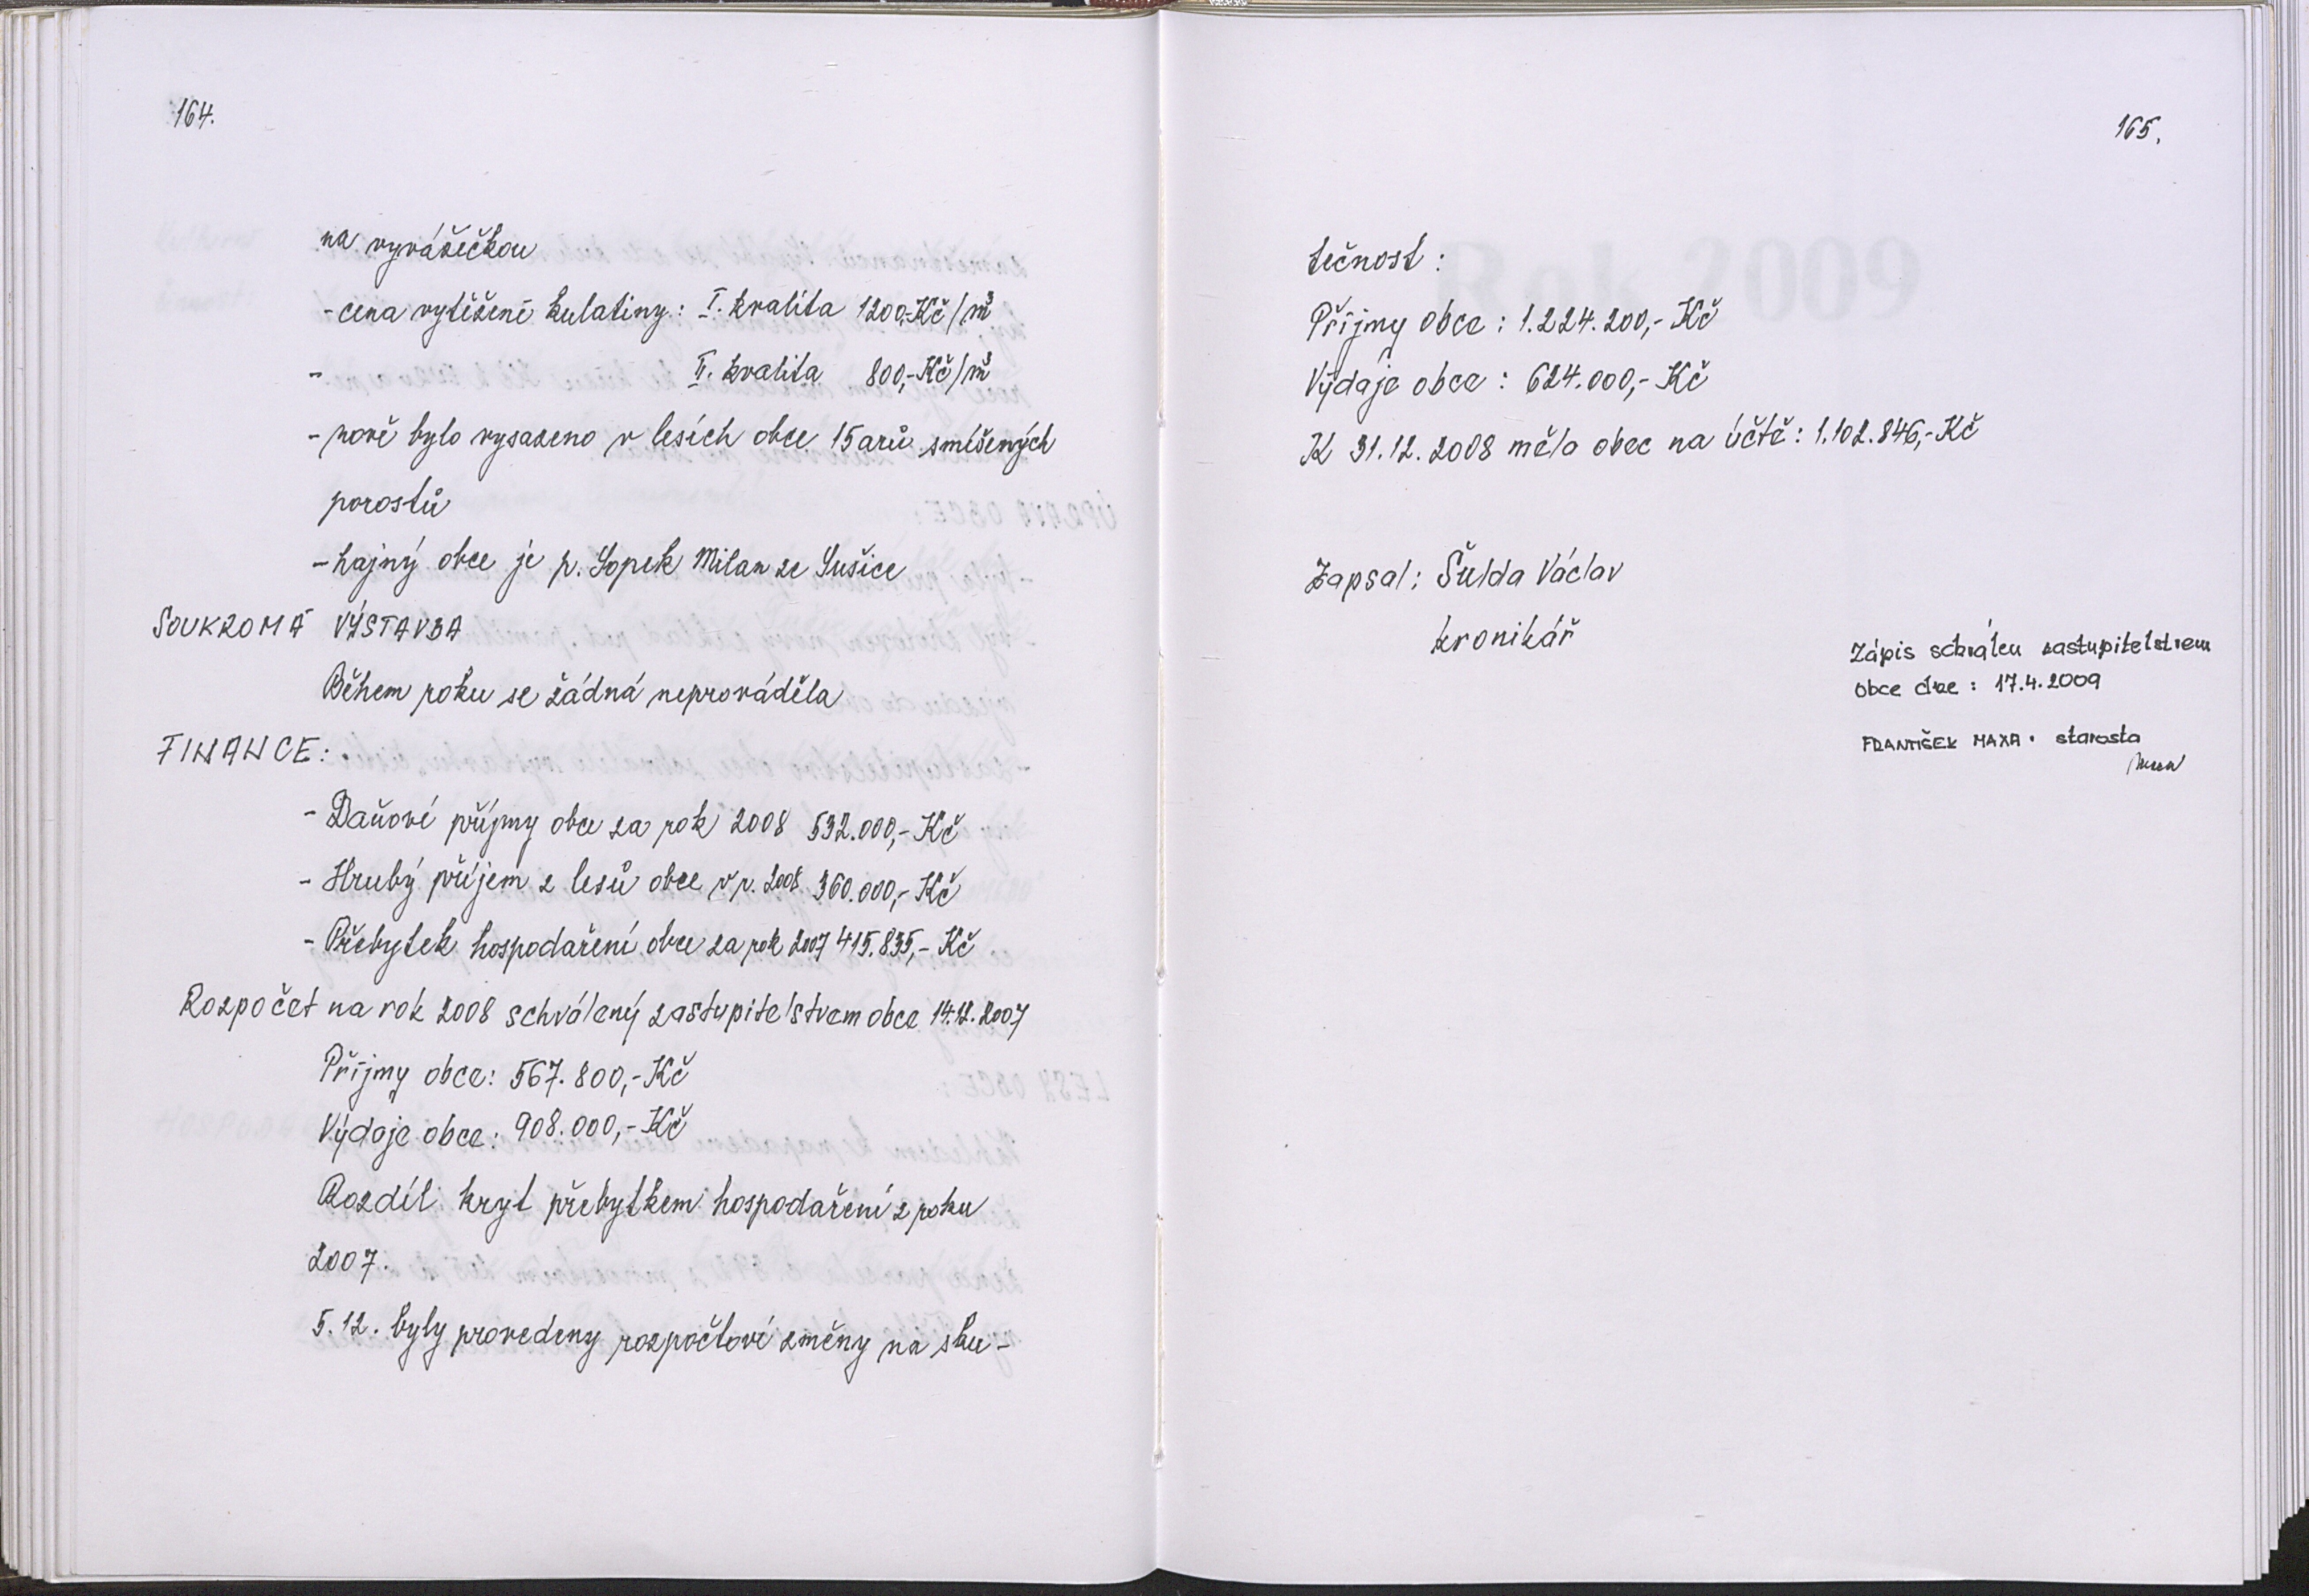 164.
na vyvážečkou
- cena vytěžení kulatiny: I. kvalita 1200,-Kč/m³
- II. kvalita 800,-Kč/m³
- nově bylo vysazeno v lesích obce 15 arů smíšených
porostů
- hajný obce je p. Sopek Milan ze Sušice
SOUKROMÁ VÝSTAVBA
Během roku se žádná neprováděla
FINANCE:
- Daňové příjmy obce za rok 2008 532.000,- Kč
- Hrubý příjem z lesů obce v r. 2008 360.000,- Kč
- Přebytek hospodaření obce za rok 2007 415.835,- Kč
Rozpočet na rok 2008 schválený zastupitelstvem obce 14.12.2007
Příjmy obce: 567.800,- Kč
Výdaje obce: 908.000,- Kč
Rozdíl kryt přebytkem hospodaření z roku
2007.
5.12. byly provedeny rozpočtové změny na sku-
165.
tečnost:
Příjmy obce: 1.224.200,- Kč
Výdaje obce: 624.000,- Kč
K 31.12.2008 měla obec na účtě: 1.102.846,- Kč
Zapsal: Šulda Václav
kronikář
Zápis schválen zastupitelstvem
obce dne: 17.4.2009
FRANTIŠEK MAXA. starosta